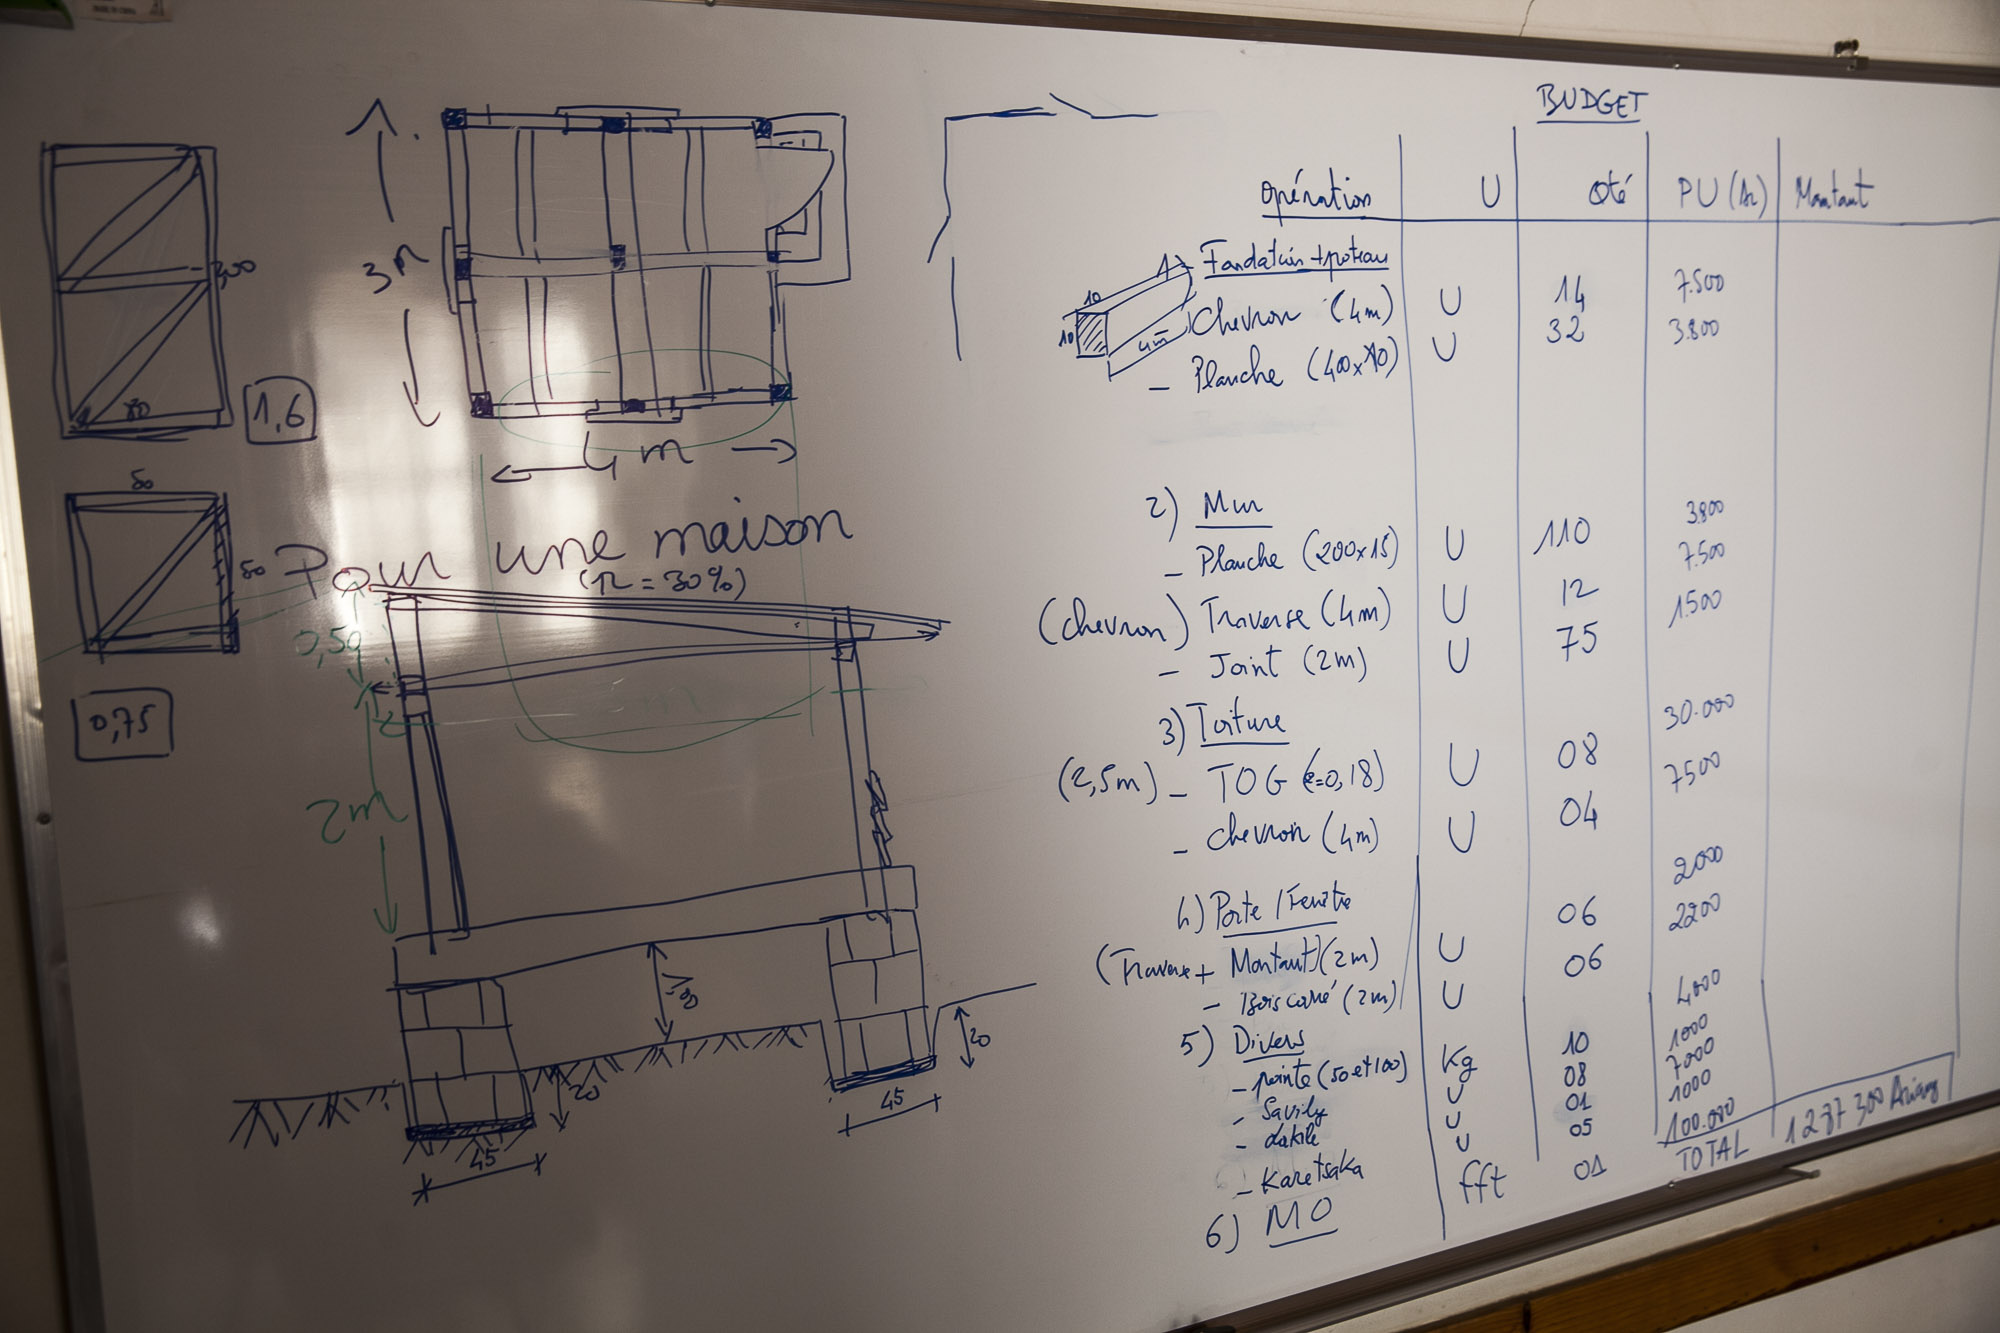 3m
300
80
1,6
4m
50
50
0,75
Pour une maison
(r = 30%)
0,50
2m
20
20
45
45
BUDGET
Opération U Qté PU (Ar) Montant
1) Fondation + poteau
10
10
4m
Chevron (4m) U 14 7.500
- Planche (400x10) U 32 3.800
2) Mur
- Planche (200x15) U 110 3.800
(chevron) Traverse (4m) U 12 7.500
- Joint (2m) U 75 1.500
3) Toiture
(2,5m) - TOG (e=0,18) U 08 30.000
- chevron (4m) U 04 7500
4) Porte / Fenêtre
(Traverse + Montant) (2m) U 06 2000
- Bois carré (2m) U 06 2200
5) Divers
- pointe (50 et 100) Kg 10 4000
- Savily U 08 1000
- Lakile U 01 7000
- Karetsaka U 05 1000
6) MO fft 01 100.000
TOTAL 1 287 300 Ariary